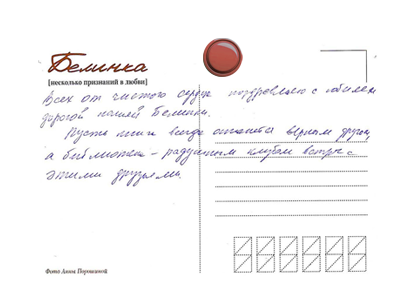 Белинка
[несколько признаний в любви]
Всех от чистого сердца поздравляю с юбилеем
дорогой нашей Белинки.
Пусть книги всегда остаются верным другом,
а библиотека – радушным клубом встреч с
этими друзьями.
Фото Анны Порошиной